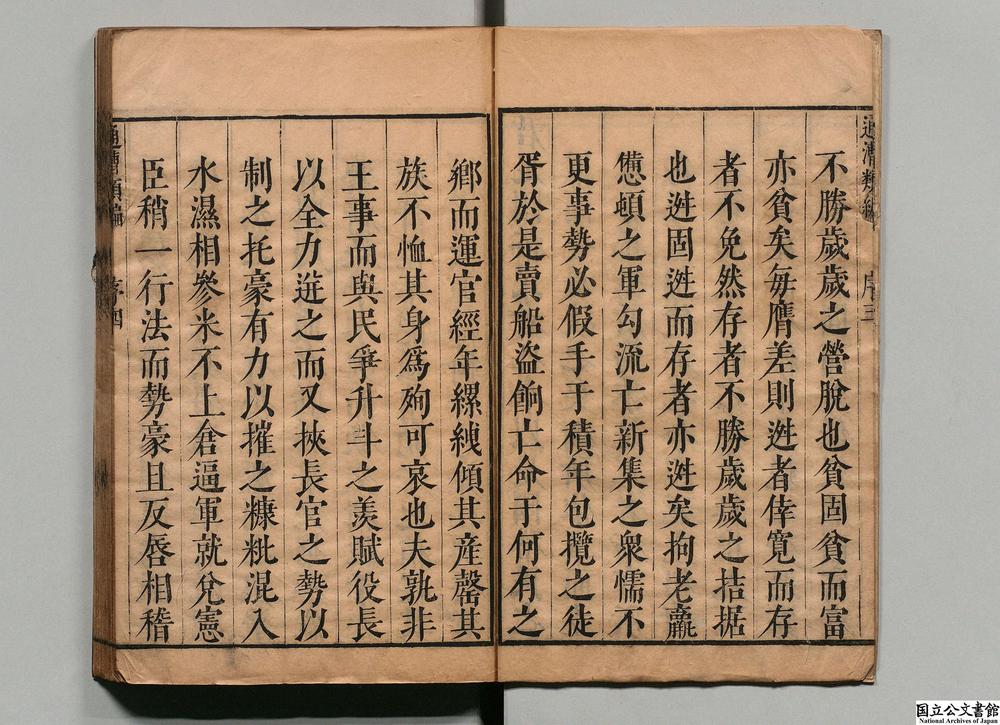 通漕類編
序三
不勝歲歲之營脫也貧固貧而富
亦貧矣每膺差則逃者倖寬而存
者不免然存者不勝歲歲之拮据
也逃固逃而存者亦逃矣拘老羸
憊頓之軍勾流亡新集之衆懦不
更事勢必假手于積年包攬之徒
胥於是賣船盜餉亡命于何有之
鄉而運官經年縲絏傾其產罄其
族不恤其身爲殉可哀也夫孰非
王事而與民爭升斗之羨賦役長
以全力迸之而又挾長官之勢以
制之托豪有力以摧之糠粃混入
水濕相參米不上倉逼軍就兌憲
臣稍一行法而勢豪且反唇相稽
通漕類編
序四
国立公文書館
National Archives of Japan